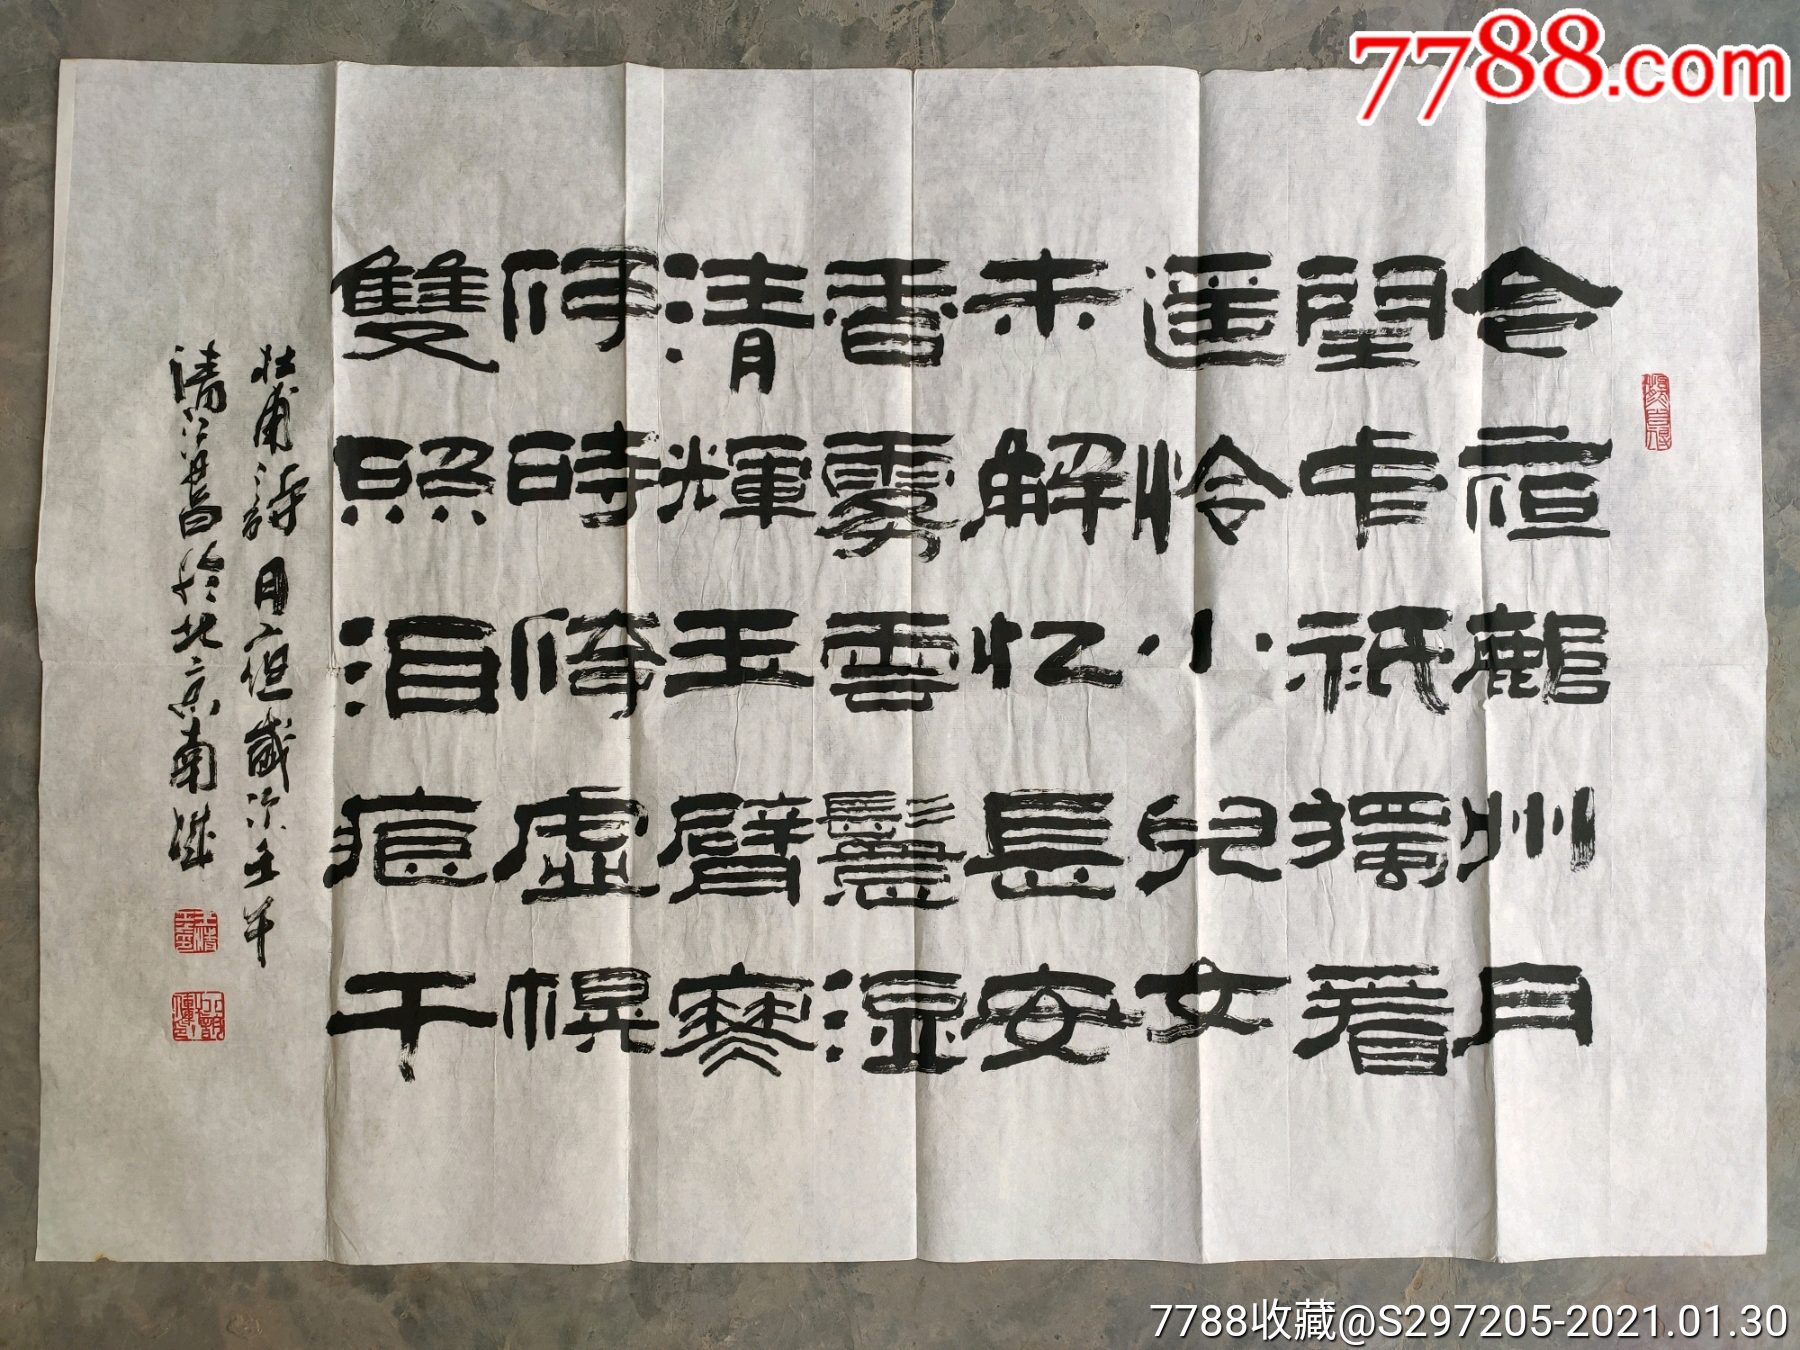 今亱鄜州月
閨中祇獨看
遥怜小兒女
未解忆長安
香雾雲鬟湿
清輝玉臂寒
何時倚虛幌
雙照泪痕干
杜甫詩月亱歲次壬午
清江昌於北京南城
7788.com
7788收藏@S297205-2021.01.30